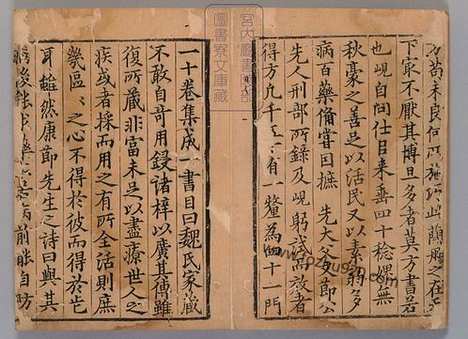 下家不厭其博旦多者莫方書若
也峴自問仕目来垂四十稔與無
秋豪之善足以活民又以素弱多
病百藥俻嘗囙摭 先大父節公
先人刑部所錄及峴躬試而效者
得方九千 有一釐為四十一門
一十卷集成一書目曰魏氏家藏
不敢自奇用鋟諸梓以廣其傳雖
復所藏非富未足以盡療世人之
疾或者採而用之有所全活則庶
幾區〻之心不得於彼而得於此
耳趂然康節先生之詩曰與其
病後能求藥 病前能自防
宮內廳書陵部
圖書寮文庫藏